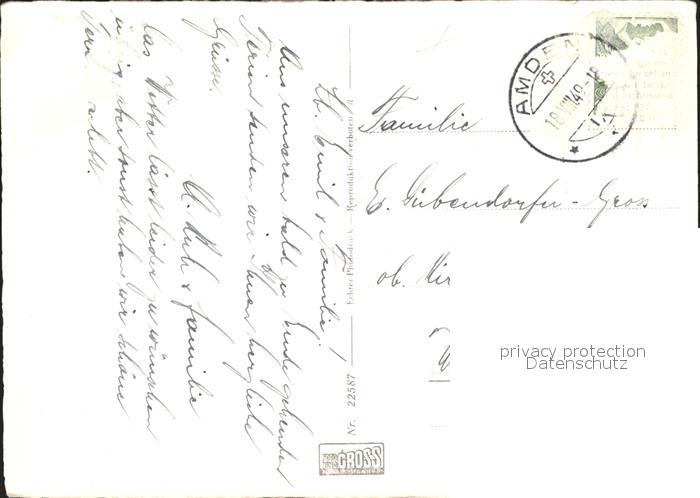 Lb. Emil & Familie!
Aus unseren bald zu Ende gehenden
Ferien senden wir Ihnen herzliche
Grüsse.
U. & Familie
Das Wetter lässt leider zu wünschen
übrig, aber sonst haben wir schöne
Ferien erlebt.
Nr. 22587
Echter Photodruck — Reproduktion verboten
GROSS
AMDEN
18.VIII.49-
Familie
E. Gübendorfer-Gross
ob. Hir
privacy protection
Datenschutz